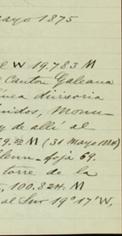 mayo 1875
W 19,783 M
Canton Galeana
línea divisoria
Unidos, Monu-
y de allí al
(31 Mayo
foja 69.
torre de la
100,824 M.
al Sur 19° 17' W,